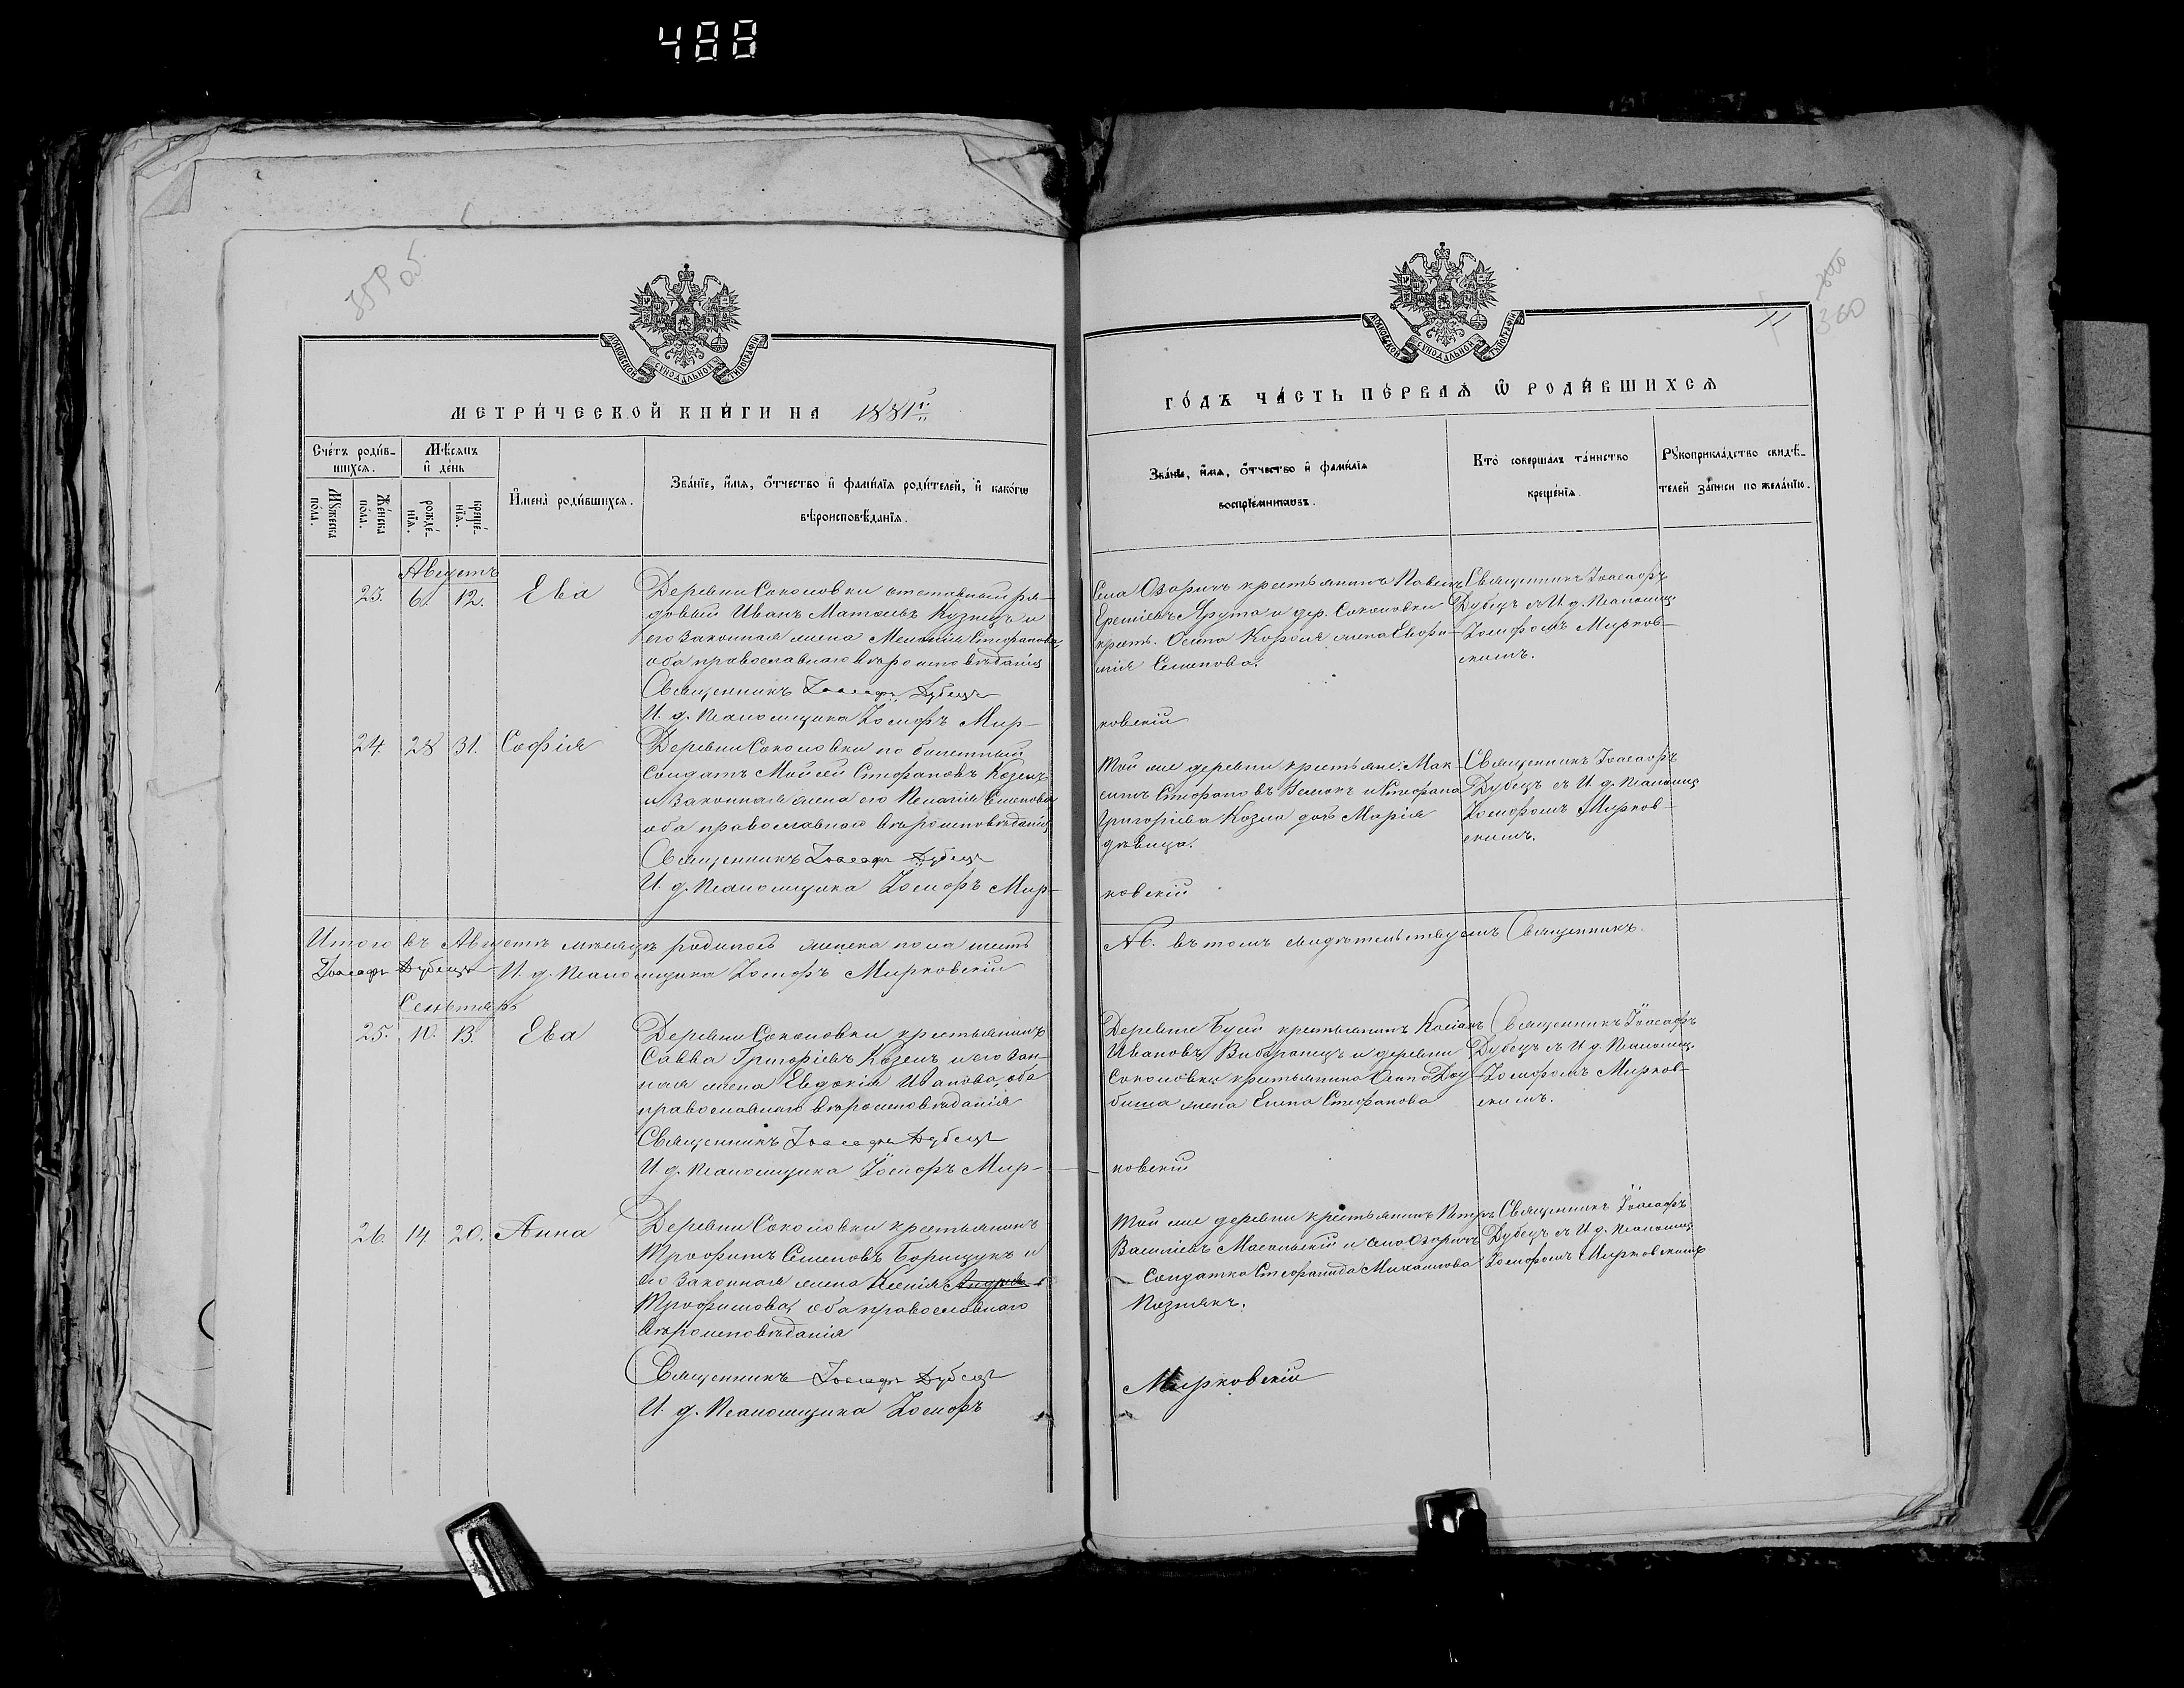 488
360
11
МОСКОВСКОЙ СѴНОДАЛЬНОЙ ТИПОГРАФІИ
МОСКОВСКОЙ СѴНОДАЛЬНОЙ ТИПОГРАФІИ
МЕТРИ́ЧЕСКОЙ КНИ́ГИ НА 1881 г.
ГО́ДЪ ЧА́СТЬ ПЕ́РВАѦ Ѿ РОДИ́ВШИХСѦ
Сче́тъ роди́в-
шихсѧ.
Мѣ́сѧцъ
и҆ де́нь
Мꙋ́жеска по́ла.
Же́нска по́ла.
рожде́-нїѧ.
креще́-нїѧ.
И҆мена̀ роди́вшихсѧ.
Зва́нїе, и҆́мѧ, ѻ҆́тчество и҆ фами́лїѧ роди́телей, и҆ како́гѡ
вѣроисповѣ́данїѧ.
Зва́нїе, и҆́мѧ, ѻ҆́тчество и҆ фами́лїѧ
воспрїе́мниковъ.
Кто̀ соверша́лъ та́инство
креще́нїѧ.
Рꙋкоприкла́дство свидѣ́-
телей за́писи по жела́нїю.
Августъ
23. 6. 12. Ева
Деревни Соколовки отставный ря-
довый Иванъ Матѳеевъ Кузнецъ и
его законная жена Меланія Стефанова,
оба православнаго вѣроисповѣданія
Священникъ Іоасафъ Дубецъ
И. д. Псаломщика Іосифъ Мир-
ковскій
Села Озаричъ крестьянинъ Павелъ
Ереміевъ Ярута и дер. Соколовки
крест. Осипа Король жена Евфи-
мія Семенова.
Священникъ Іоасафъ
Дубецъ съ И. д. Псаломщ.
Іосифомъ Мирков-
скимъ.
24. 28 31. Софія
Деревни Соколовки по билетный
солдатъ Мойсей Стефановъ Козелъ
и законная жена его Пелагія Семенова
оба православнаго вѣроисповѣданія
Священникъ Іоасафъ Дубецъ
И. д. Псаломщика Іосифъ Мир-
ковскій
Той же деревни крестьяне: Мак-
симъ Стефановъ и Стефана
Григоріева Козла дочь Марія
дѣвица.
Священникъ Іоасафъ
Дубецъ съ И. д. Псаломщ
Іосифомъ Мирков-
скимъ.
Итого въ Августѣ мѣсяцѣ родилось женска пола шесть
№6. въ томъ свидѣтельствуемъ Священникъ
Іоасафъ Дубецъ И. д. Псаломщика Іосифъ Мирковскій
Сентябрь
25. 10. 13. Ева
Деревни Соколовки крестьянинъ
Савва Григоріевъ Козелъ и его зак-
ная жена Евдокія Иванова, оба
православнаго вѣроисповѣданія
Священникъ Іоасафъ Дубецъ
И. д. Псаломщика Іосифъ Мир-
ковскій
Деревни Бусы крестьянинъ Касіанъ
Ивановъ Выбранецъ и деревни
Соколовки крестьянина Осипа Дов-
биша жена Елена Стефанова
Священникъ Іоасафъ
Дубецъ съ И. д. Псаломщ.
Іосифомъ Мирков-
скимъ.
26. 14 20. Анна
Деревни Соколовки крестьянинъ
Трофимъ Семеновъ Борищукъ и
его законная жена Ксенія
Трофимова, оба православнаго
вѣроисповѣданія
Священникъ Іоасафъ Дубецъ
И. д. Псаломщика Іосифъ
Мирковскій
Той же деревни крестьянинъ Петръ
Василіевъ и села Озаричъ
солдатка Стефанида Михаилова
Познякъ.
Священникъ Іоасафъ
Дубецъ съ И. д. Псаломщ
Іосифомъ Мирковскимъ